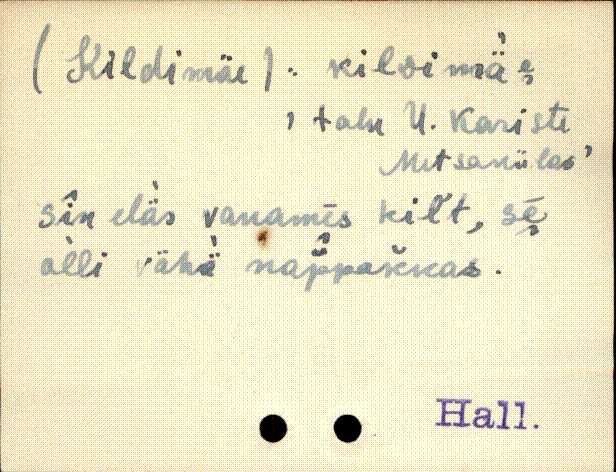 (Kildimäe). kilʙimä̀e̮
, talu U. Kariste
Metsanülas'
sîn elä̀s vanamēs kil̆t, sē̮
òlli vähä̀ nap̂pak̆kas.
Hall.